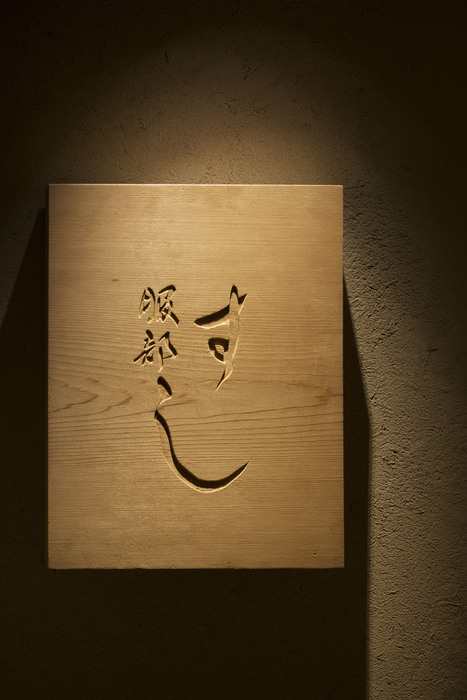 すし
服部